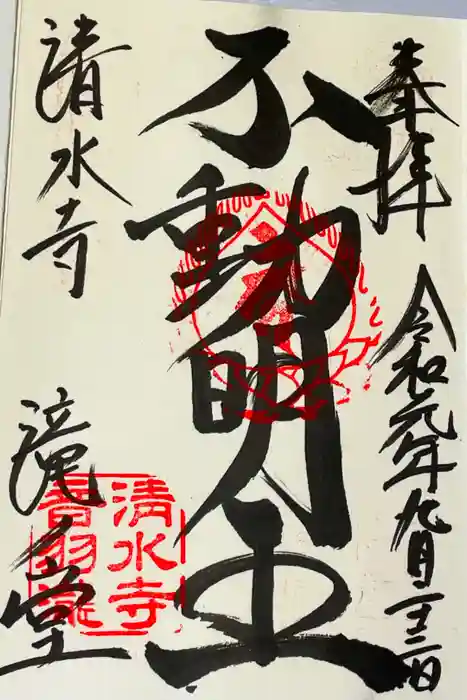 奉拝
令和元年九月二十三日
不動明王
清水寺
滝ノ堂
清水寺
音羽滝